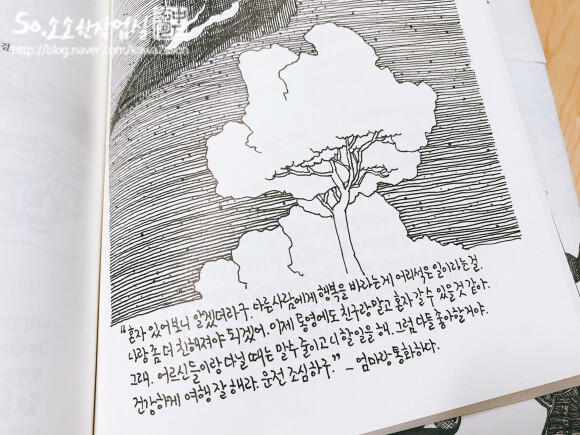 So.소소한작업실
http://blog.naver.com/kawa2son
걸
"혼자 있어보니 알겠더라구. 다른사람에게 행복을 바라는게 어리석은 일이라는걸.
나랑 좀 더 친해져야 되겠어. 이제 통영에도 친구랑 말고 혼자 갈 수 있을 것 같아.
그래. 어르신들이랑 다닐 때는 말수 줄이고 니 할일을 해. 그럼 다들 좋아할거야.
건강하게 여행 잘 해라. 운전 조심하구." - 엄마랑 통화하다.